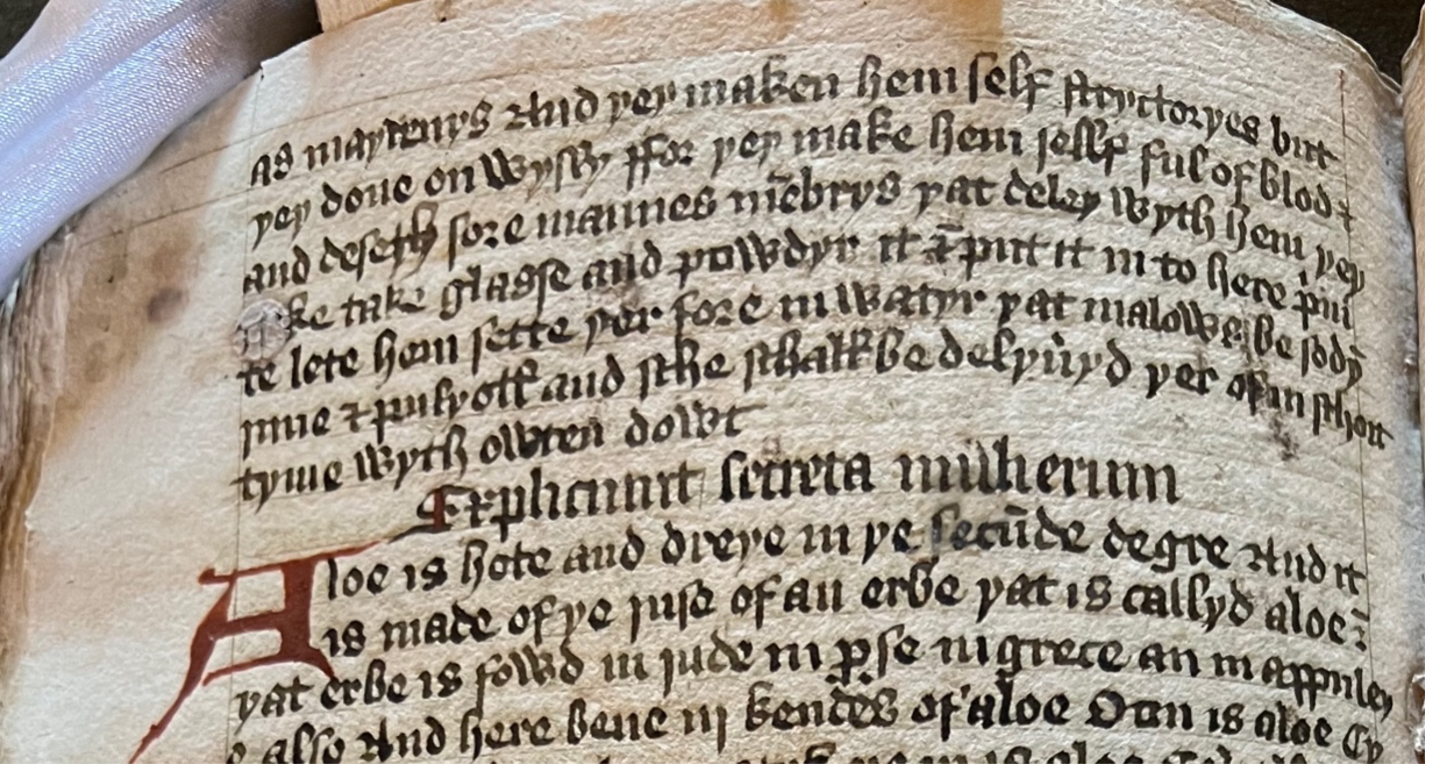 as maydenys And þey maken hem self stryctoryes but
þey done on wysly ffor þey make hem self ful of blod &
and deseyth sore mannes mēbrys þat deley wyth hem þey
take glasse and powdyr it & put it in to here priui
te lete hem sette þer fore in watyr þat malowys be sodyn
inne & pulyoll and sche schall be delyuyd þer of in schort
tyme wyth owten dowt
Expliciunt secreta mulierum
Aloe is hote and dreye in þe secūde degre And it
is made of þe juse of an erbe þat is callyd aloe &
þat erbe is fowd in jnde in pse in grece an in appuley
also And here bene iij kendes of aloe Oon is aloe